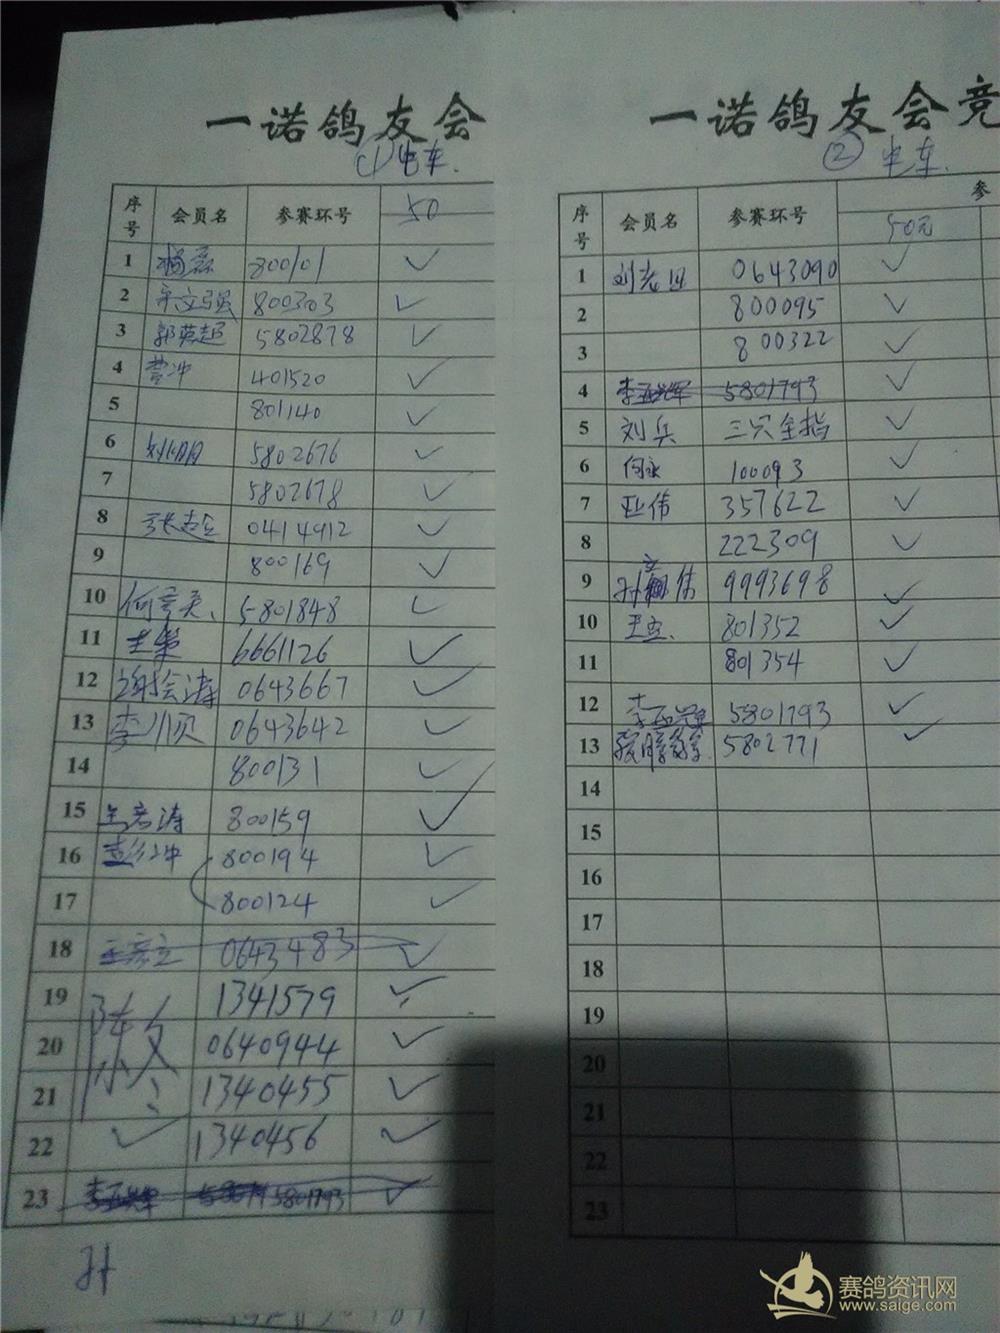 一诺鸽友会
(1) 电车.
序号 会员名 参赛环号 50
1 杨磊 800101 ✓
2 宋文强 800303 ✓
3 郭英超 5802878 ✓
4 曹冲 401520 ✓
5 801140 ✓
6 5802676 ✓
7 5802678 ✓
8 0414912 ✓
9 800169 ✓
10 5801848 ✓
11 6661126 ✓
12 谢会涛 0643667 ✓
13 李川页 0643642 ✓
14 800131 ✓
15 王彦涛 800159 ✓
16 彭冲 800194 ✓
17 800124 ✓
18 王彦立 0643483 ✓
19 1341579 ✓
20 0640944 ✓
21 1340455 ✓
22 ✓ 1340456 ✓
23 5801793 ✓
一诺鸽友会竞
② 电车.
序号 会员名 参赛环号 参
50元
1 0643090 ✓
2 800095 ✓
3 800322 ✓
4 5801793 ✓
5 刘兵 三只全指 ✓
6 100093 ✓
7 亚伟 357622 ✓
8 222309 ✓
9 9993698 ✓
10 801352 ✓
11 801354 ✓
12 5801793 ✓
13 5802771 ✓
14
15
16
17
18
19
20
21
22
23
赛鸽资讯网
www.saige.com